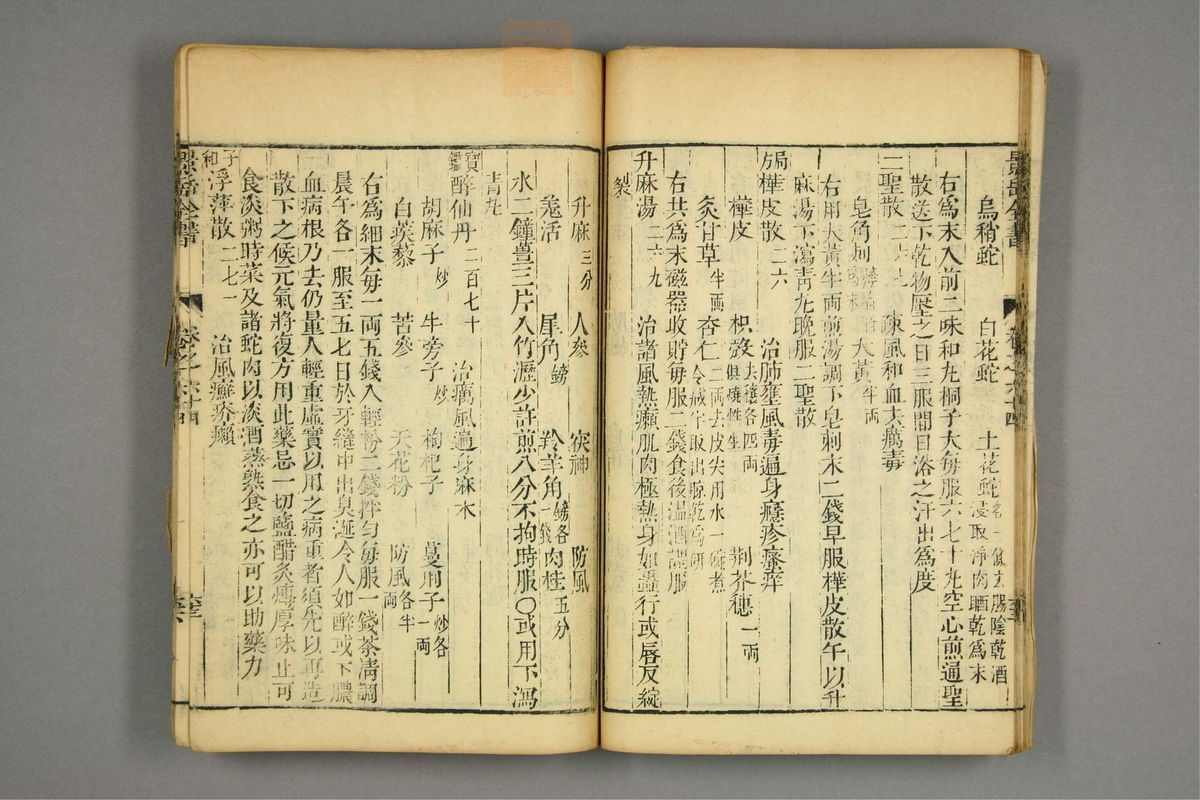 景岳全書 卷之六十四
烏稍蛇 白花蛇 土花蛇各一條去腸陰乾酒浸取淨肉晒乾為末
右為末入前二味和丸桐子大每服六七十丸空心煎通聖
散送下乾物壓之日三服間日浴之汗出為度
二聖散 疎風和血去癘毒
皂角刺 大黃半両
右用大黃半両煎湯調下皂刺末二錢早服樺皮散午以升
麻湯下瀉青丸晚服二聖散
局樺皮散二六 治肺壅風毒遍身癮疹瘙痒
樺皮 枳殼去穰各四両俱燒性生 荊芥穗一両
炙甘草半両 杏仁二両去皮尖用水一碗煮令減半取出晾乾為研
右共為末磁器收貯每服二錢食後溫酒調服
升麻湯二六九 治諸風熱癩肌肉極熱身如蟲行或唇反綻
裂
升麻三分 人參 茯神 防風
羗活 犀角鎊 羚羊角鎊各一錢 肉桂五分
水二鐘薑三片入竹瀝少許煎八分不拘時服○或用下瀉
青丸
寶鑑醉仙丹二百七十 治癘風遍身麻木
胡麻子炒 牛旁子炒 枸杞子 蔓荊子炒各一両
白蒺藜 苦參 天花粉 防風各半両
右為細末每一両五錢入輕粉二錢拌勻每服一錢茶清調
晨午各一服至五七日於牙縫中出臭涎令人如醉或下膿
血病根乃去仍量人輕重虛實以用之病重者須先以再造
散下之候元氣將復方用此藥忌一切鹽醋炙煿厚味止可
食淡粥時菜及諸蛇肉以淡酒蒸熟食之亦可以助藥力
子和浮萍散二七一 治風癬疥癩
景岳全書 卷之六十四